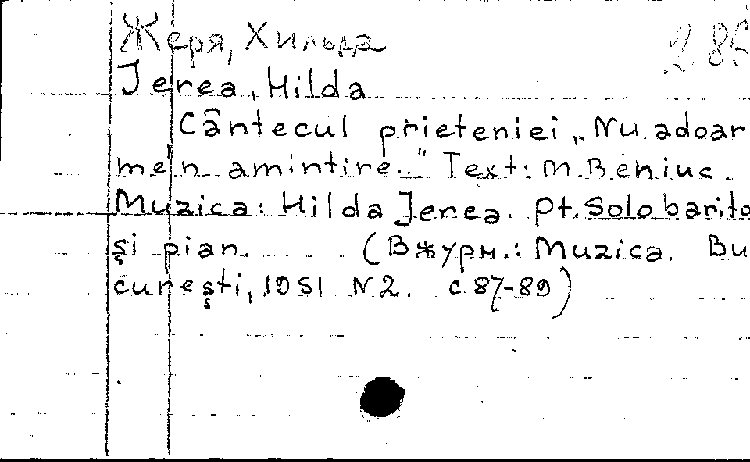 Жеря, Хильда
Jerea, Hilda
Cântecul prieteniei „Nu adoar
men amintire." Text: M. Beniuc.
Muzica: Hilda Jerea. Pt. Solo barito
şi pian. (В журн.: Muzica. Bu
cureşti, 1951 N 2. с. 87-89)